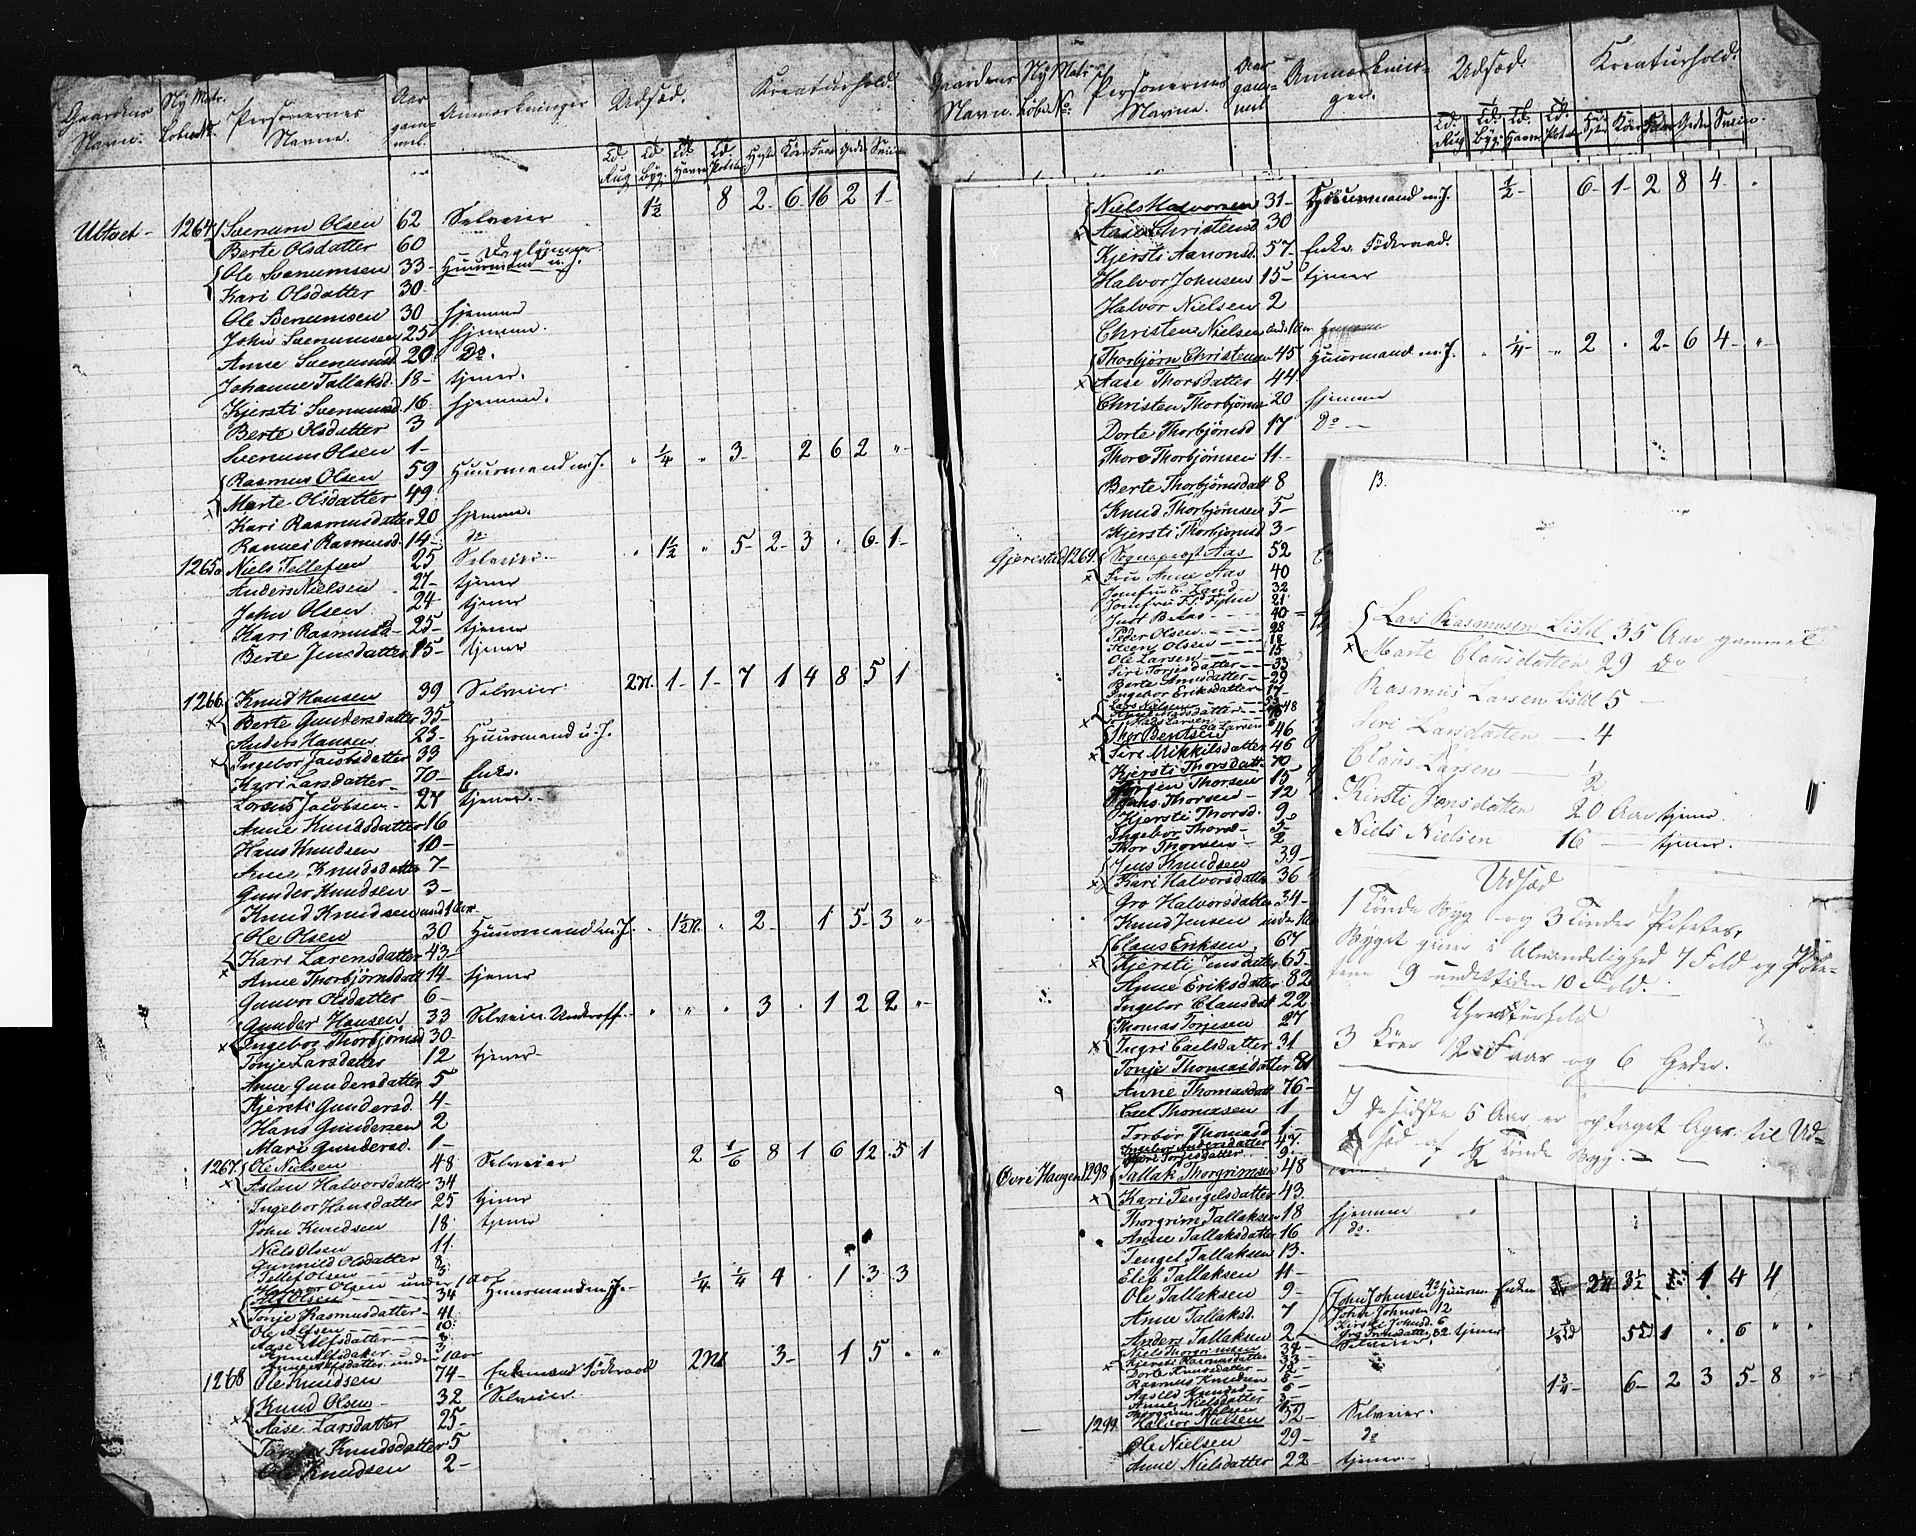 Gaardens Navn. Ny Matr. Løbe No. Personernes Navne. Aar gammel. Anmærkninger Udsæd. Kreaturhold.
Td. Rug Td. Byg. Td. Havre Td. Potet. Heste Køer Faar Geder Sviin
1½ 8 2 6 16 2 1
Ubtvet 1264 Svenum Olsen 62 Selveier
Berte Olsdatter 60
Ole Svenumsen 33 Daglønner Huusmand u. J.
Kari Olsdatter 30
Ole Svenumsen 30 hjemme
John Svenumsen 25 hjemme.
Anne Svenumsd. 20 Do.
Johanne Tallaksd. 18 tjener.
Kjersti Svenumsd. 16 hjemme.
Berte Olsdatter 3
Svenum Olsen 1
Rasmus Olsen 59 Huusmand m. J. " ¼ " 3 2 6 2 "
Marte Olsdatter 49
Kari Rasmusdatter 20 hjemme.
Rannei Rasmusd. 14 do
1265a Niels Tellefsen 25 Selveier " 1½ " 5 2 3 " 6 1
Anders Nielsen 27 tjener
John Olsen 24 tjener
Kari Rasmusd. 25 tjener
Berte Jensdatter 15 tjener
1266 Knud Hansen 39 Selveier 1 1 7 1 4 8 5 1
Berte Gundersdatter 35
Anders Hansen 23 Huusmand u. J.
Ingebor Jacobsdatter 33
Kari Larsdatter 70 Enke.
Lorens Jacobsen 27 tjener.
Anne Knudsdatter 16
Hans Knudsen 10
Anne Knudsdatter 7
Gunder Knudsen 3
Knud Knudsen und. 1 Aar
Ole Olsen 30 Huusmand m. J. " 1½ " 2 1 5 3 "
Kari Larensdatter 43
Anne Thorbjørnsdatt 14 tjener
Gunvor Olsdatter 6
Gunder Hansen 33 Selveier. Underoff. " " " 3 . 1 2 2 "
Ingebor Thorbjørnsd 30
Tonje Larsdatter 12 tjener
Anne Gundersdatter 5
Kjersti Gundersd. 4
Hans Gundersen 2
Mari Gundersd. 1
1267 Ole Nielsen 48 Selveier 2 1/6 8 1 6 12 5 1
Aslau Halvorsdatter 34
Ingebor Hansdatter 25 tjener
John Knudsen 18 tjener
Niels Olsen 11
Gunnild Olsdatter 8
Tellef Olsen 3
Halvor Olsen under 1 Aar
Alf Olsen 34 Huusmand m. J. ¼ ¼ 4 . 1 3 3
Tonje Rasmusdatter 41
Ole Alfsen 10
Aase Alfsdatter 8
Anne Alfsdatter 3
Anne Alfsdatter under 1 Aar
1268 Ole Knudsen 74 Enkemand Føderaad 3 1 5 " "
Knud Olsen 32 Selveier
Aase Larsdatter 25
Knudsdatter 5
Ole Knudsen 2
Gaardens Navn. Ny Matr. Løbe No. Personernes Navne. Aar gammel Anmærkninger. Udsæd. Kreaturhold.
Td. Rug Td. Byg Td. Havre Td. Potet. Heste Køer Faar Geder Sviin.
Niels Halvorsen 31 Huusmand m. J. ½ 6 1 2 8 4 "
Aase Christensd 30
Kjersti Aanonsd. 57 Enke Føderaad.
Halvor Johnsen 15 tjener
Halvor Nielsen 2
Christen Nielsen und. 1 Aar
Thorbjørn Christensen 45 Huusmand m. J. " ¼ " 2 " 2 6 4 "
Aase Thorsdatter 44
Christen Thorbjørns 20 hjemme
Dorte Thorbjørnsd 17 Do
Thore Thorbjørnsen 11
Berte Thorbjørnsdatt 8
Knud Thorbjørnsen 5
Kjersti Thorbjørnsd 3
Gjerestad 1269 Sognepræst Aas 52
Fru Anne Aas 40
Jomfru E. Lund 32
Jomfru 21
Just B. Aas 40
Peder Olsen 28
Steen Olsen 18
Ole Larsen 15
Siri Torjesdatter 33
Berte Annesdatter 29
Ingebor Eriksdatter 17
Lars Nielsen
Thor Bentsen 46
Siri Mikkilsdatter 46
Kjersti Thorsdatt. 70
Jørgen Thorsen 15
Hans Thorsen 12
Kjersti Thorsd. 9
Ingebor Thorsd 5
Thor Thorsen 2
Jens Knudsen 39
Kari Halvorsdatter 36
Gro Halvorsdatter 34
Knud Jensen under 1 Aar
Claus Eriksen 67
Kjersti Jensdatter 65
Anne Eriksdatter 82
Ingebor Clausdat 22
Thomas Torjesen 27
Ingri Carlsdatter 31
Tonje Thomasdatter 81
Anne Thomasdatt 76
Carl Thomasen 1
Torbor Thomasd 1
Ingebor Andersdatter 47
Torjesdatter 9
Øvre Haugen 1298 Tallak Thorgrimsen 48
Kari Tengelsdatter 43
Thorgrim Tallaksen 18 hjemme
Anne Tallaksdatter 16 do.
Tengel Tallaksen 13
Elef Tallaksen 11
Ole Tallaksen 9
Anne Tallaksd. 7
Anders Tallaksen 2
John Johnsen 42 Huusm. Enkem 3½ 1 4 4
John Johnsen 12
Kirsti Johnsd. 6
32 tjener
Niels Thorgrimsen 34 Selveier 1 " 6 " "
Kjersti Rasmusdatter 33
Dorte Knudsdatter 12
Rasmus Knudsen 8
Aasild Knudsd 6
Anne Nielsdatter 3
Thorgrim Nielsen
1299 Halvor Nielsen 32 Selveier. 1¾ 6 2 3 5 8 "
Ole Nielsen 29 do
Anne Nielsdatter 22 tjener
B.
Lars Rasmusen Lishl 35 Aar gammel
Marte Clausdatter 29 Do
Rasmus Larsen Lishl 5
Siri Larsdatter 4
Claus Larsen ½
Kirsti Jensdatter 20 Aar tjener
Niels Nielsen 16 tjener.
Udsæd
1 Tønde Byg og 3 Tønder Poteter,
Bygget giver i Almindelighed 7 Fold og Pote-
terne 9 undertiden 10 Fold.
Creaturhold
3 Køer 12 Faar og 6 Geder.
I de sidste 5 Aar er optaget Ager til Ud-
sæd af ½ Tønde Byg.